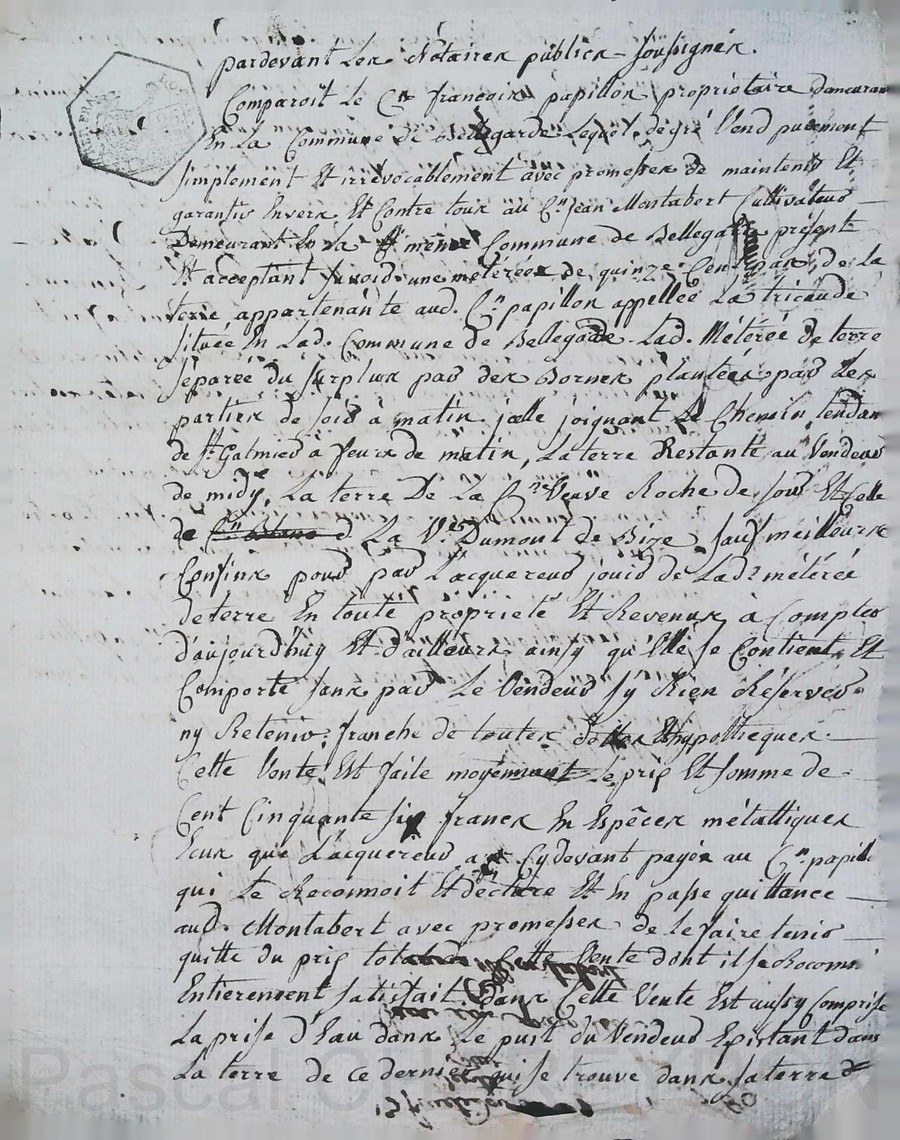 pardevant Les Notaires publics soussignés.
Comparoit Le C.en françois papillon propriétaire demeurant
En La Commune de Bellegarde Lequel de gré Vend purement
simplement Et irrévocablement avec promesses de maintenir Et
garantir Envers Et Contre tous au C.n Jean Montabert Cultivateur
Demeurant En La même Commune de Bellegarde présent
Et acceptant une métérée de quinze Cent pas de La
terre appartenante aud. C.n papillon appellée La tricaude
située En Lad. Commune de Bellegarde Lad. Métérée de terre
séparée du surplus par des Bornes plantées par Les
parties de soir à matin jcelle joignant Le Chemin tendan
de St. Galmier à feurs de matin, La terre Restante au Vendeur
de midy, La terre De La C.ne Veuve Roche de soir Et Celle
de La V.e Dumont de Bize, sauf meilleurs
Confins pour par L'acquereur jouir de Lad. métérée
de terre En toute propriété Et Revenus à Compter
d'aujourd'huy Et d'ailleurs ainsy qu'Elle se Contient Et
Comporte sans par Le Vendeur sy Rien Réserver
ny Retenir, franche de toutes dettes Et hypotheques.
Cette Vente Est faite moyennant Le prix Et somme de
Cent Cinquante six francs En Espèces métalliques
Ecus que L'acquereur a Cydevant payés au C.n papill
qui Le Reconnoit Et déclare Et En passe quittance
aud. Montabert avec promesses de le faire tenir
quitte du prix total de Cette Vente dont il se Reconni
Entierement satisfait. Dans Cette Vente Est aussy Comprise
La prise d'Eau dans Le puit du Vendeur Existant dans
La terre de ce dernier qui se trouve dans sa terre de